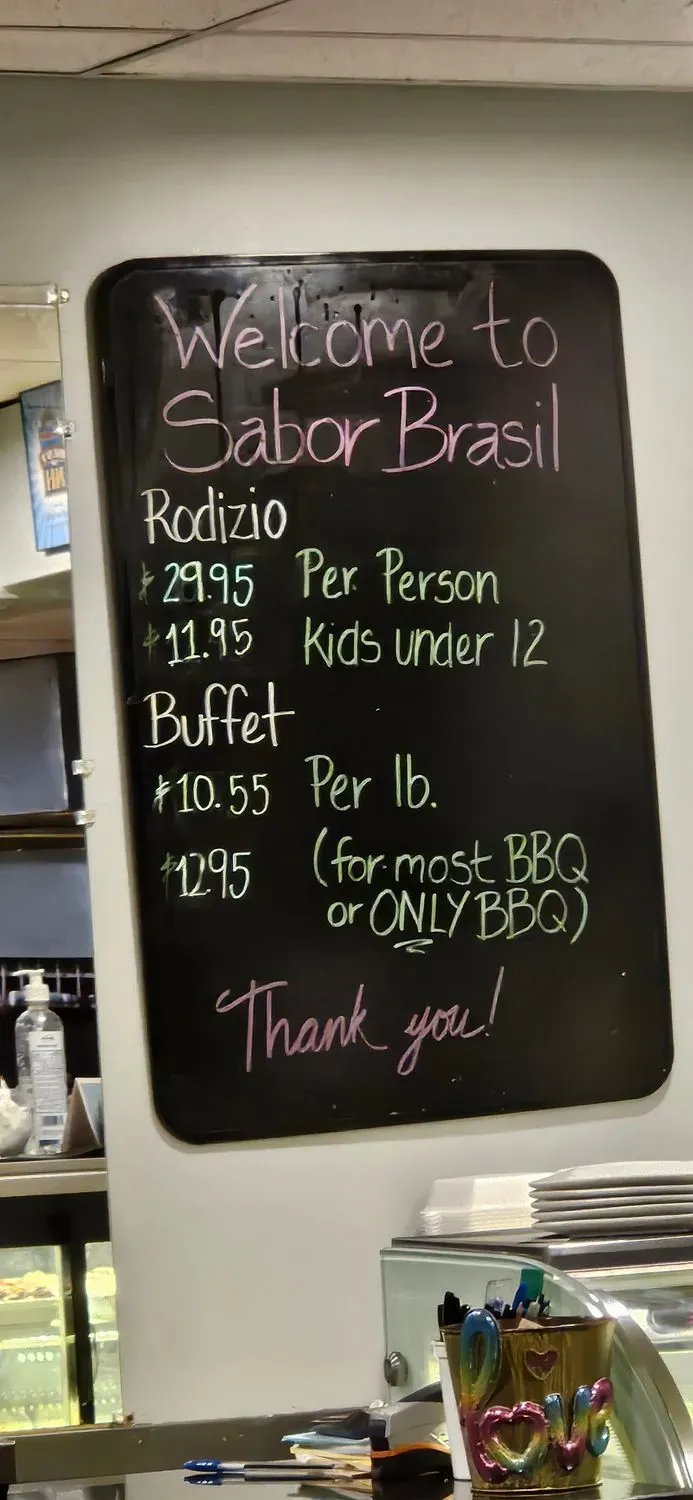 Welcome to
Sabor Brasil
Rodizio
$29.95 Per Person
$11.95 Kids under 12
Buffet
$10.55 Per lb.
$12.95 (for most BBQ
or ONLY BBQ)
Thank you!
love